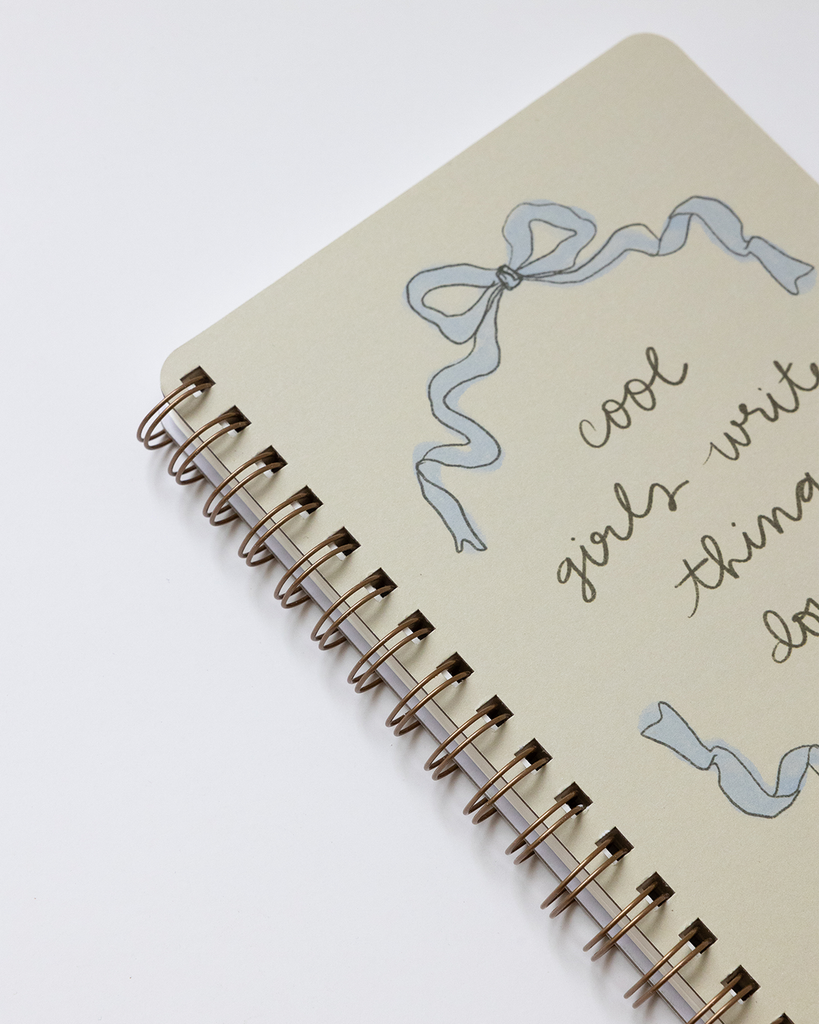 cool
girls write
thing
do